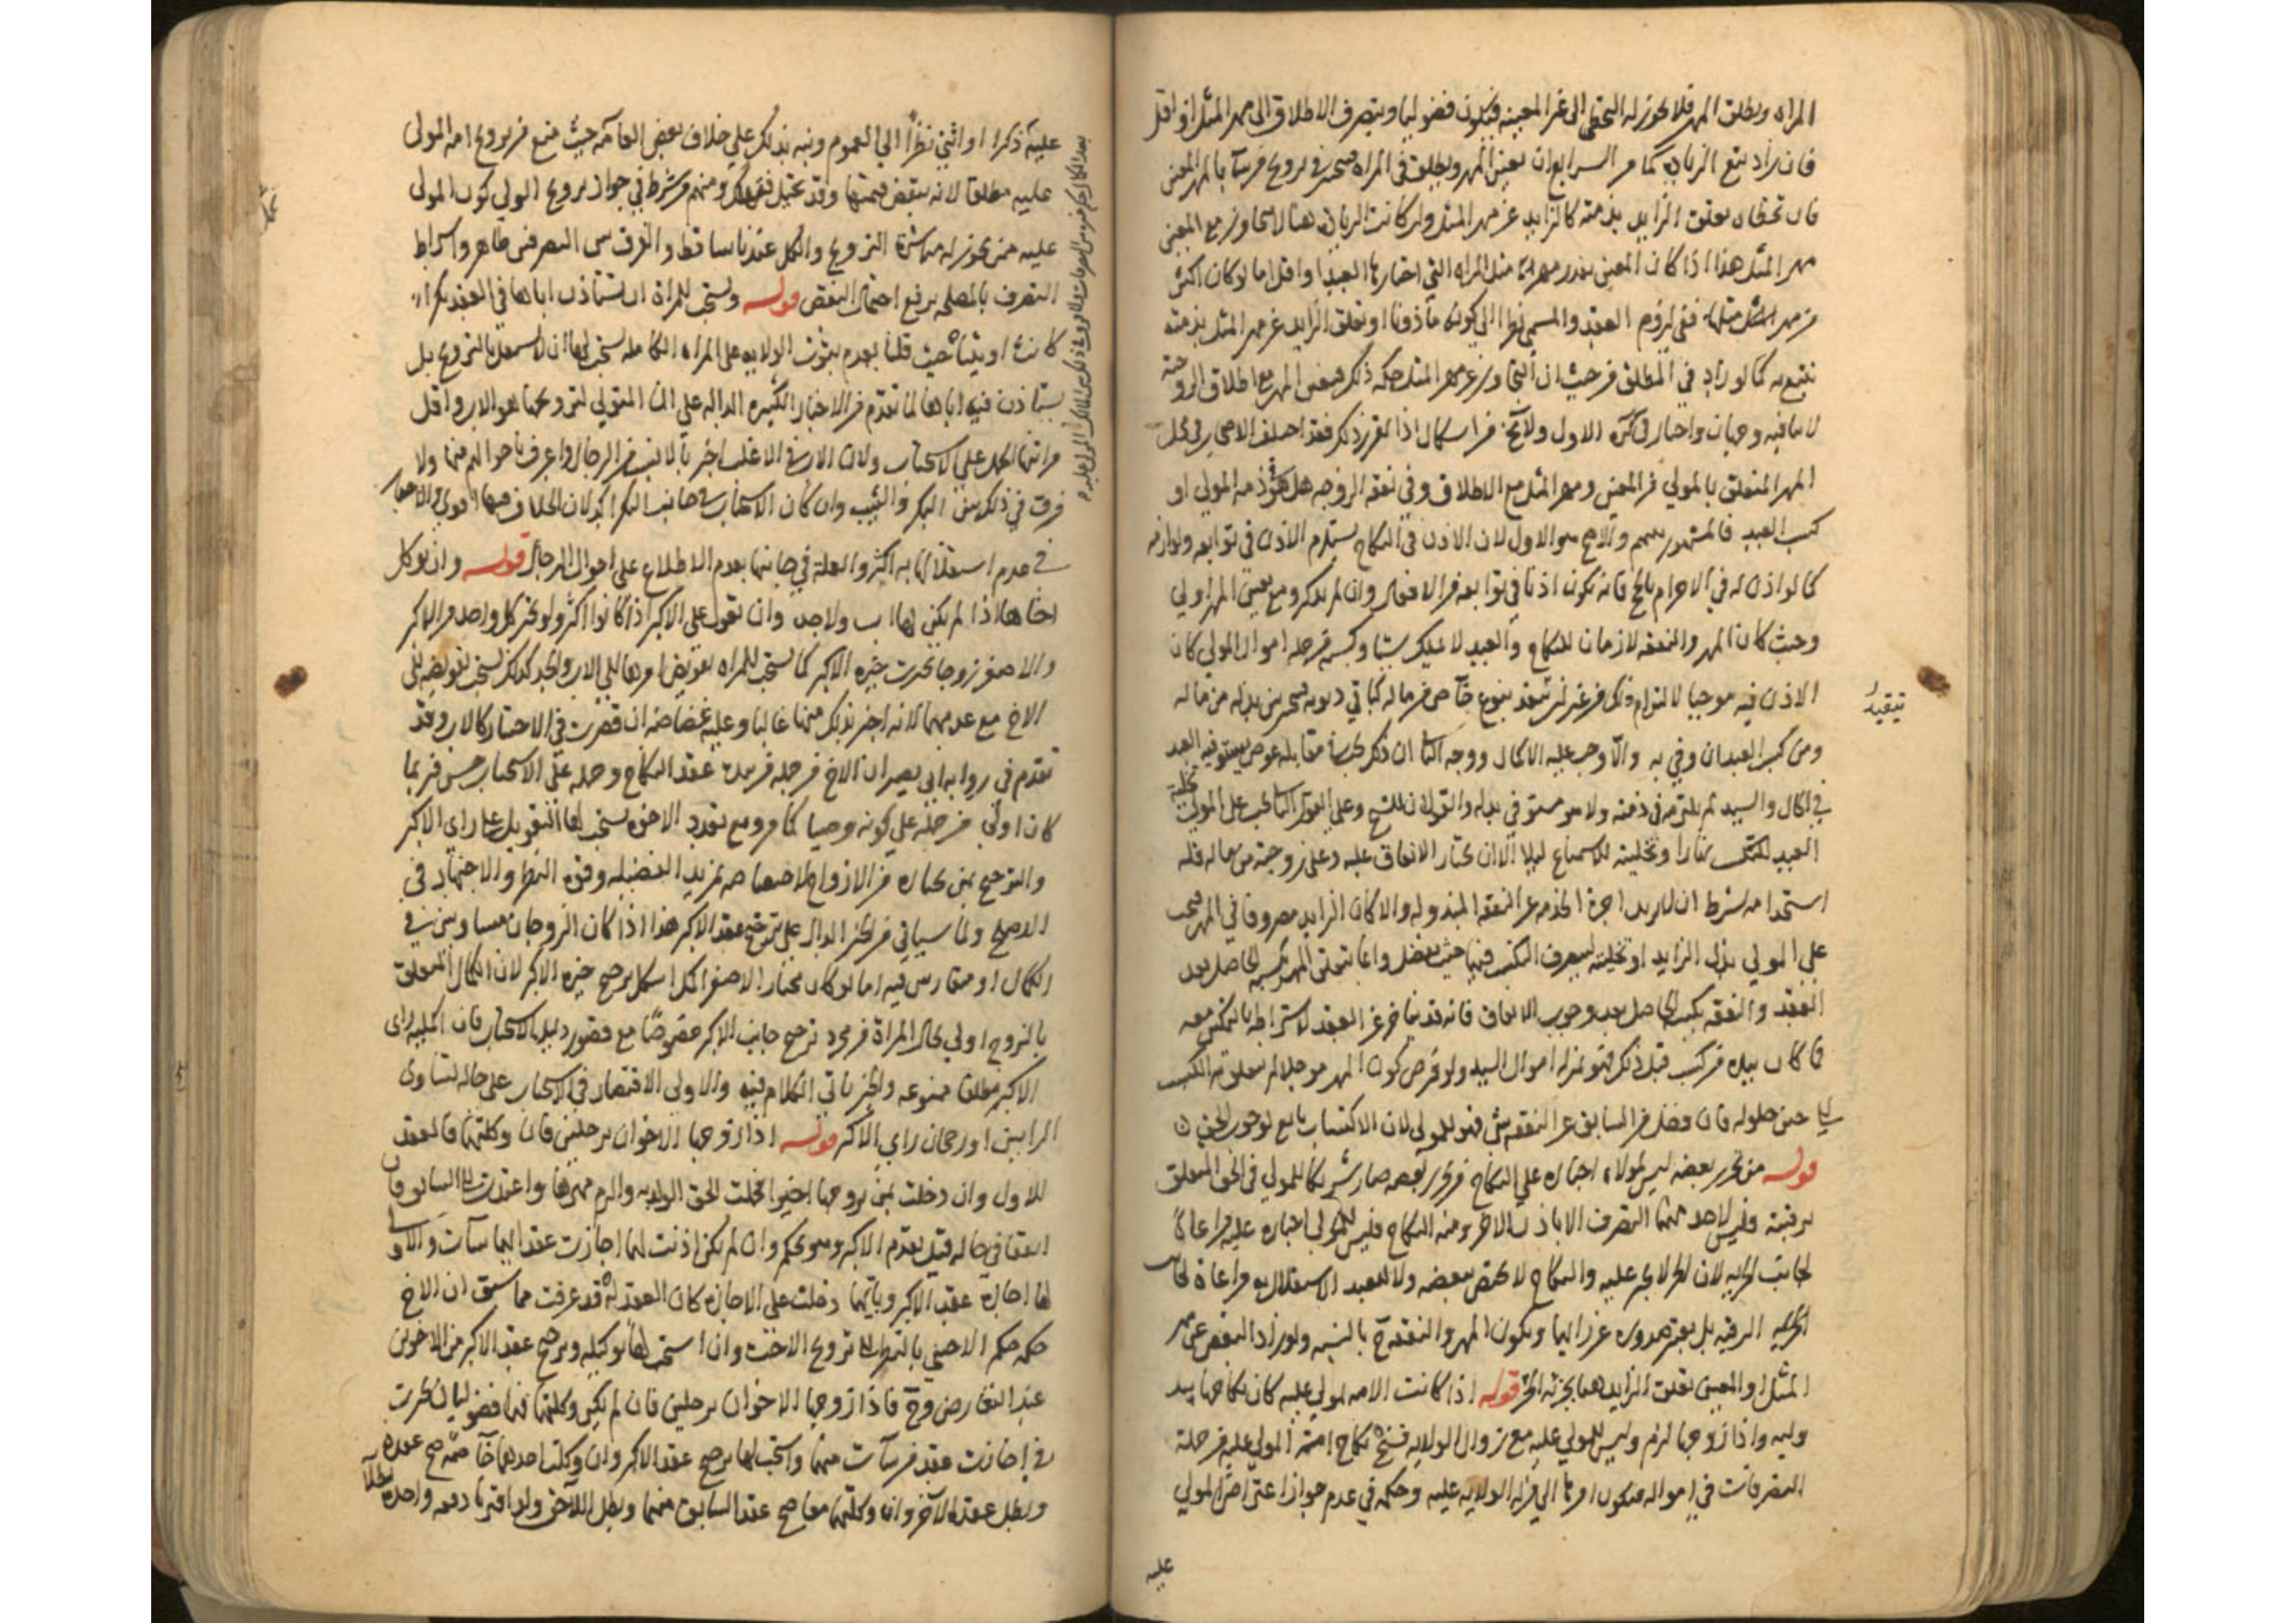 المراه ويطلق المهر فلا يجوز له التخطي الى غير المعينه فيكون فضوليا وينصرف الاطلاق الى مهر المثل او اقل
فان زاد يتبع الزياده كما مر الرابع ان يعين المهر ويطلق في المراه فيتخير في تزويج من شاء بالمهر المعين
فان تخطاه تعلق الزايد بذمته كالزايد عن مهر المثل ولو كانت الزياده هنا لا تتجاوز مع المعين
مهر المثل هذا اذا كان المعين بقدر مهر مثل المراه التي اختارها العبد او اقل اما لو كان اكثر
من مهر مثلها ففي لزوم العقد والمسمى نظرا الى كونه مأذونا او تعلق الزايد عن مهر المثل بذمته
يتبع به كما لو زاد في المطلق من حيث ان التجاوز عن مهر المثل حكمه ذلك فيعين المهر مع اطلاق الزوجة
لا ينافيه وجهان واختار في كره الاول ولا يخ من اشكال اذا تقرر ذلك فقد اختلف الاصحاب في محل
المهر المتعلق بالمولى من المعين ومهر المثل مع الاطلاق وفي نفقه الزوجه هل هو ذمة المولى او
كسب العبد فالمشهور بينهم والاصح هو الاول لان الاذن في النكاح يستلزم الاذن في توابعه ولوازمه
كما لو اذن له في الاحرام بالحج فانه يكون اذنا في توابعه من الافعال وان لم يذكر ومع تعيين المهر اولى
وحيث كان المهر والنفقه لازمان للنكاح والعبد لا يملك شيئا وكسبه من جمله اموال المولى كان
الاذن فيه موجبا لالتزام ذلك من غير ان يتقيد بنوع خاص من ماله كباقي ديونه فيتخير بين بذله من ماله
تقييد
ومن كسب العبد ان وفى به والا وجب عليه الاكمال ووجه الثاني ان ذلك يجب مقابله عوض يستوفيه العبد
في الحال والسيد لم يلتزمه في ذمته ولا هو مستوفي بدله والقولان للشيخ وعلى القول الثاني يجب على المولى تخلية
العبد للتكسب نهارا وتخليته للاستمتاع ليلا الا ان يختار الانفاق عليه وعلى زوجته من ماله فله
استخدامه بشرط ان لا يزيد اجرة الخدمه عن النفقه المبذوله والا كان الزايد مصروفا في المهر فيجب
على المولى بذل الزايد او تخليته ليصرف الكسب فيهما حيث يفضل وانما يتعلق المهر بكسبه الحاصل بعد
العقد والنفقه بكسبه الحاصل بعد وجوب الانفاق فانه قد يتاخر عن العقد لاشتراطه بالتمكين معه
فما كان بيده من كسب قبل ذلك فهو بمنزله اموال السيد ولو فرض كون المهر مؤجلا لم يتعلق به الكسب
الى حين حلوله فان فضل من السابق عن النفقه شئ فهو للمولى لان الاكتساب تابع لوجوب الحق
قوله من تحرر بعضه ليس لمولاه اجباره على النكاح من تحرر بعضه صار شريكا للمولى في الحق المتعلق
برقبته وليس لاحد منهما التصرف الا باذن الاخر ومنه النكاح فليس للمولى اجباره عليه مراعاة
لجانب الحريه لان الحر لا يجبر عليه والنكاح لا يختص ببعضه ولا للعبد الاستقلال به مراعاة لجانب
الرقيه بل يعتبر صدوره عن رايهما ويكون المهر والنفقه ح بالنسبه ولو زاد البعض عن مهر
المثل او المعين تعلق الزايد هنا بجزئه الحر قوله اذا كانت الامه لمولى عليه كان نكاحها بيد
وليه واذا زوجها لزم وليس للمولى عليه مع زوال الولايه فسخه نكاح امة المولى عليه من جملة
التصرفات في امواله فيكون امرها الى من له الولايه عليه وحكمه في عدم جواز اعتراض المولى
عليه
عليه ذكرا او انثى نظرا الى العموم ونبه بذلك على خلاف بعض العامه حيث منع من تزويج امه المولى
عليه مطلقا لانه ينقص قيمتها وقد تحبل فتهلك ومنهم من شرط في جواز تزويج الولي كون المولى
عليه ممن يجوز له مباشرة التزويج والكل عندنا ساقط والفرق بين التصرفين ظاهر واشتراط
التصرف بالمصلحه يرفع احتمال النقص قوله ويستحب للمراة ان تستأذن اباها في العقد بكرا
كانت او ثيبا حيث قلنا بعدم ثبوت الولايه على المراه الكامله يستحب لها ان لا تستقل بالتزويج بل
تستاذن فيه اباها لما تقدم من الاخبار الكثيره الداله على ان المتولي لتزويجها هو الاب واقل
مراتبها الحمل على الاستحباب ولان الاب في الاغلب اخبر بالانسب من الرجال واعرف باحوالهم منها ولا
فرق في ذلك بين البكر والثيب وان كان الاستحباب في جانب البكر اكد لان الخلاف فيها اقوى والاخبار
في عدم استقلالها به اكثر والعلة في جانبها بعدم الاطلاع على احوال الرجال قوله وان توكل
اخاها اذا لم يكن لها اب ولا جد وان تعول على الاكبر اذا كانوا اكثر ولو تخير كل واحد من الاكبر
والاصغر زوجا تخيرت خيره الاكبر كما يستحب للمراه تفويض امرها الى الاب والجد كذلك يستحب تفويضه الى
الاخ مع عدمهما لانه اخبر بذلك منها غالبا وعليه غضاضه ان قصرت في الاختيار كالاب وقد
تقدم في روايه ابي بصير ان الاخ من جمله من بيده عقد النكاح وحمله على الاستحباب حسن فربما
كان اولى من حمله على كونه وصيا كما مر ومع تعدد الاخوه يستحب لها التعويل على راي الاكبر
والترجيح بمن يختاره من الازواج لاختصاصه بمزيد الفضيله وقوة النظر والاجتهاد في
الاصلح ولما سياتي من الخبر الدال على ترجيح عقد الاكبر هذا اذا كان الزوجان متساويين في
الكمال او متقاربين فيه اما لو كان مختار الاصغر اكمل اشكل ترجيح خيره الاكبر لان الكمال المتعلق
بالزوج اولى بحال المراة من مجرد ترجيح جانب الاكبر خصوصا مع قصور دليل الاستحباب فان اكمليه راى
الاكبر مطلقا ممنوعه والخبر ياتي الكلام فيه والاولى الاقتصار في الاستحباب على حاله تساوى
الرايين او رجحان راي الاكبر قوله اذا زوجها الاخوان برجلين فان وكلتهما فالعقد
للاول وان دخلت بمن تزوجها اخيرا فحملت الحق الولد به والزم مهرها واعيدت الى السابق فان
اتفقا في حاله قيل يقدم الاكبر وهو تحكم وان لم تكن اذنت لهما اجازت عقد ايهما شاءت والاولى
لها اجازة عقد الاكبر وبايهما دخلت على الاجازه كان العقد له قد عرفت مما سبق ان الاخ
حكمه حكم الاجنبي بالنظر الى تزويج الاخت وان استحب لها توكيله وترجيح عقد الاكبر من الاخوين
عند التعارض وح فاذا زوجها الاخوان برجلين فان لم تكن وكلتهما فهما فضوليان تخيرت
في اجازت عقد من شاءت منهما واستحب لها ترجيح عقد الاكبر وان وكلت احدهما خاصة صح عقده
وبطل عقد الآخر وان وكلتهما معا صح عقد السابق منهما وبطل اللاحق ولو اقترنا دفعه واحدة بطلا